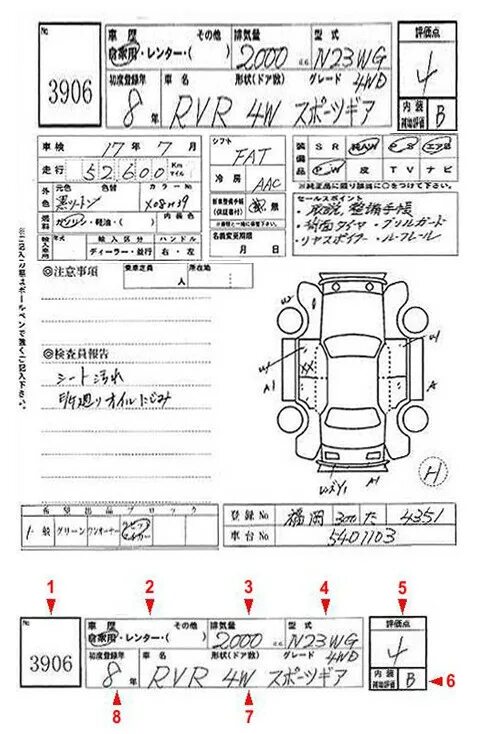 No.
3906
車歴 その他
自家用・レンター・( )
排気量
2000 c.c.
型式
N23WG
初度登録年
8年
車名 形状(ドア数) グレード 4WD
RVR 4W スポーツギア
評価点
4
内装
補助評価 B
車検 17年7月
走行 52600 Km マイル
外色 元色 色替 カラーNo
黒ツートン X08H59
燃料 ガソリン・軽油・( ) 内装色
年式 輸入区分 ハンドル
ディーラー・並行 右・左
シフト
FAT
冷房
AAC
新車整備手帳
(保証書付) 有 無
名義変更期限
月 日
装備品 SR 純AW PS エアB
PW 皮 TV ナビ
※純正品に限り該当に○をつけて下さい。
セールスポイント
・取説、整備手帳
・背面タイヤ・グリルガード
・リヤスポイラー・ルーフレール
※記入の際はボールペンで強くご記入下さい。
◎注意事項
乗車定員 人 所在地
◎検査員報告
シート汚れ
E/G廻りオイルにじみ
A1
A
A1
H
希望出品ブロック
一般 グリーン ワンオーナー
登録No 福岡 300 た 4351
車台No 5401103
1 2 3 4 5
No.
3906
車歴 その他
自家用・レンター・( )
排気量
2000 c.c.
型式
N23WG
初度登録年
8年
車名 形状(ドア数) グレード 4WD
RVR 4W スポーツギア
評価点
4
内装
補助評価 B
6
8 7